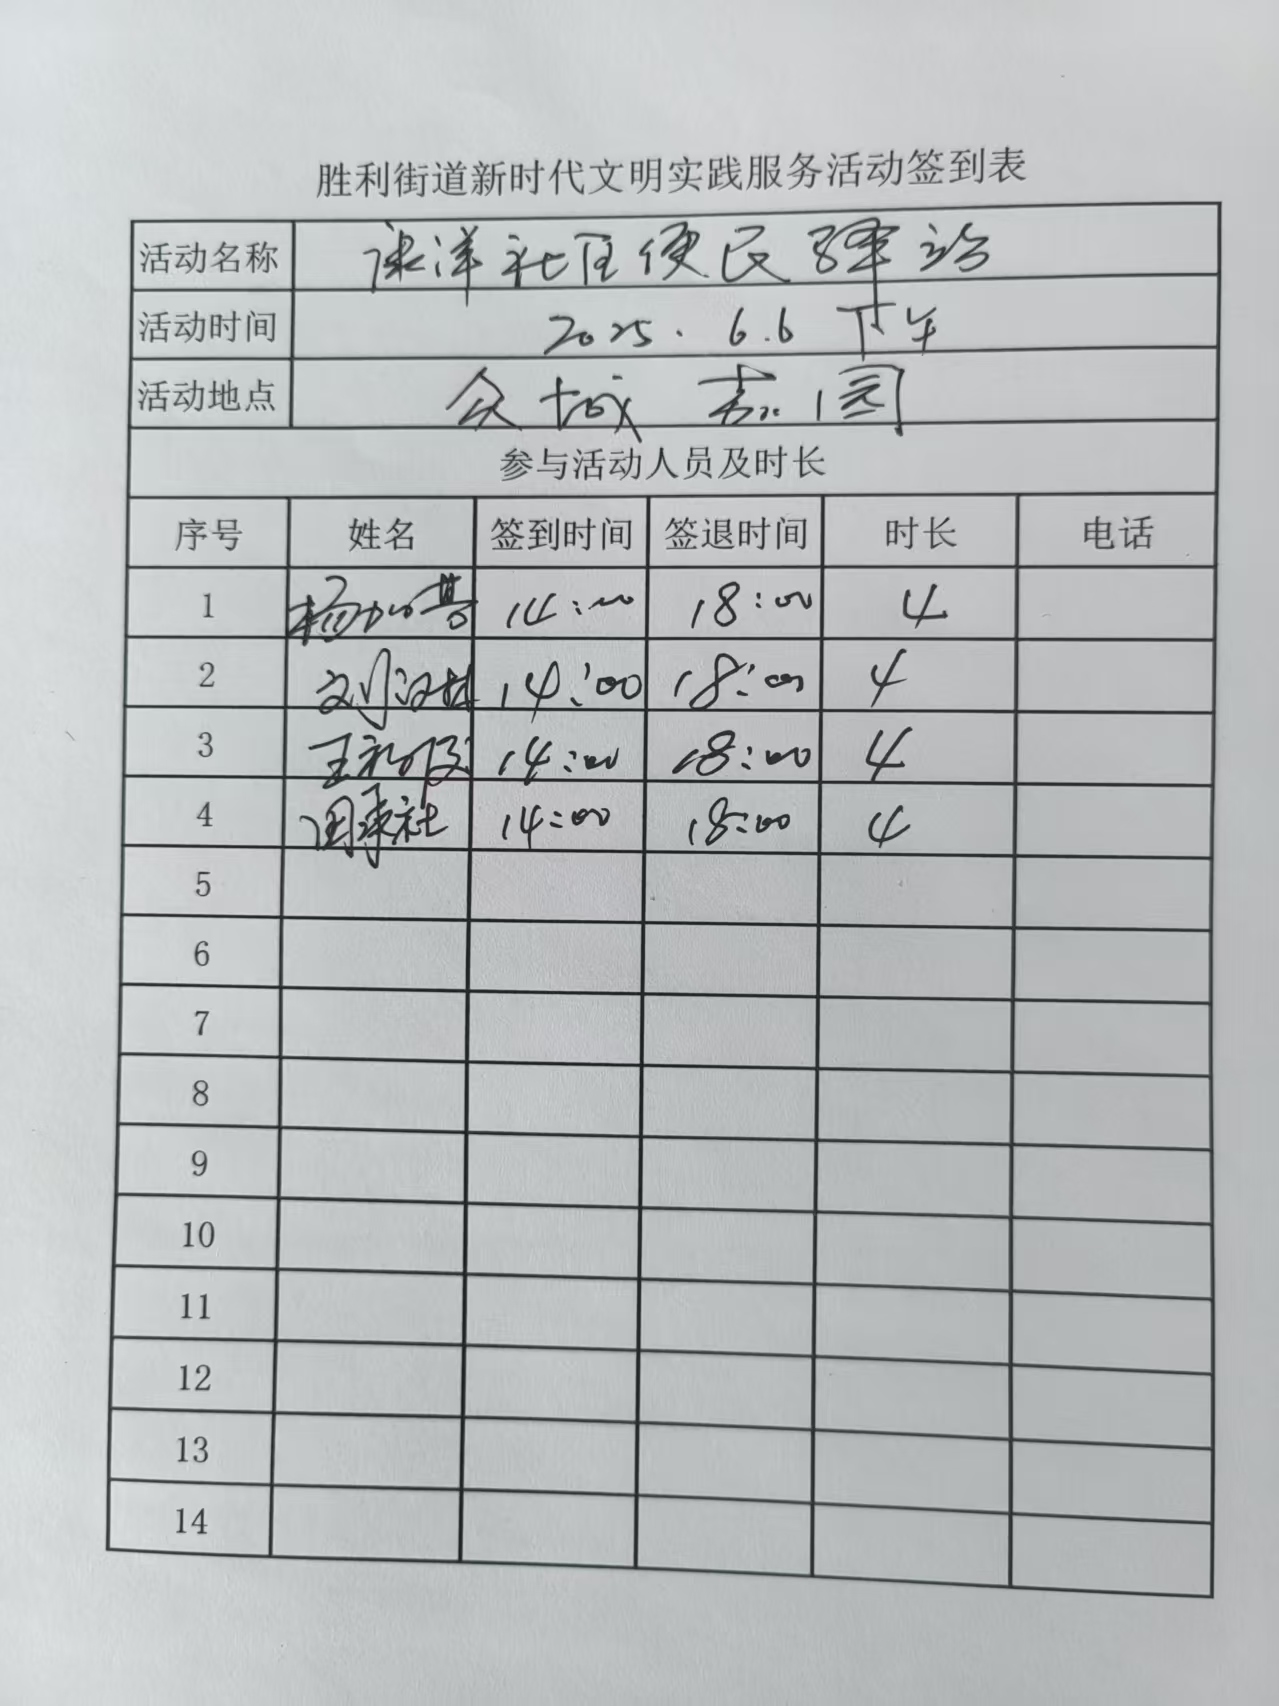 胜利街道新时代文明实践服务活动签到表
活动名称 社区便民驿站
活动时间 2025.6.6 下午
活动地点 众城嘉园
参与活动人员及时长
序号 姓名 签到时间 签退时间 时长 电话
1 14:00 18:00 4
2 刘汉林 14:00 18:00 4
3 14:00 18:00 4
4 田承社 14:00 18:00 4
5
6
7
8
9
10
11
12
13
14